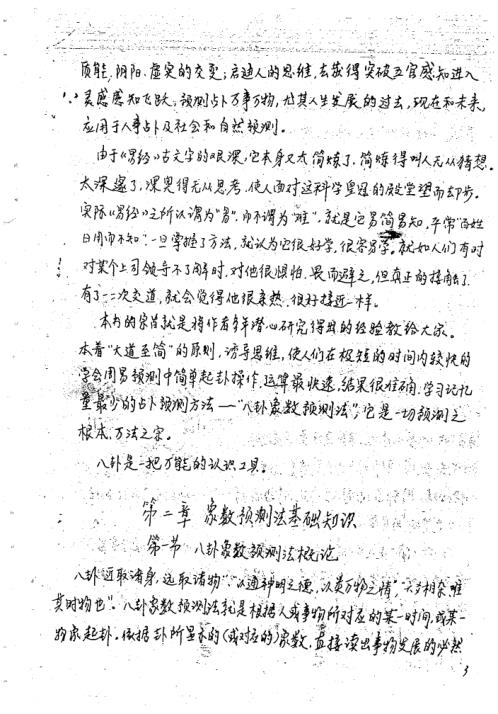 质能,阴阳、虚实的交变;启迪人的思维,去获得突破五官感知进入
灵感感知飞跃,预测占卜万事万物,尤其人生发展的过去,现在和未来,
应用于人事占卜及社会和自然预测。
由于《易经》古文字的艰深,它本身又太简炼了,简炼得叫人无从猜想。
太深邃了,深奥得无从思考,使人面对这科学皇冠的殿堂望而却步。
实际《易经》之所以谓为"易",而不谓为"难",就是它易简易知,平常"百姓
日用而不知",一旦掌握了方法,就认为它很好学,很容易学。就如人们有时
对某个上司领导不了解时,对他很惧怕、畏而避之,但真正的接触了
有了一二次交道,就会觉得他很亲热、很好接近一样。
本书的宗旨就是将作者多年潜心研究得出的经验教给大家。
本着"大道至简"的原则,诱导思维,使人们在极短的时间内较快的
学会周易预测中简单起卦操作,运算最快速,结果很准确,学习记忆
量最少的占卜预测方法——"八卦象数预测法",它是一切预测之
根本,万法之宗。
八卦是一把万能的认识工具。
第二章 象数预测法基础知识
第一节 八卦象数预测法概论
八卦"近取诸身,远取诸物","以通神明之德,以类万物之情","六爻相杂唯
其时物也"。八卦象数预测法就是根据人或事物所对应的某一时间,或某一
物象起卦。依据卦所显示的(或对应的)象数,直接读出事物发展的必然
3